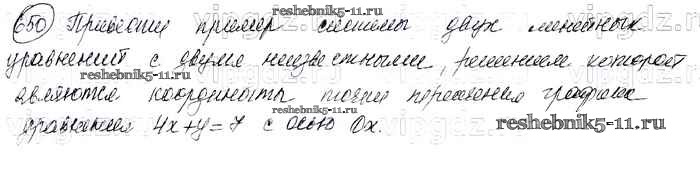 650) Привести пример системы двух линейных
уравнений с двумя неизвестными, решением которой
являются координаты точки пересечения графика
уравнения 4x+y=7 с осью Ox.
reshebnik5-11.ru
reshebnik5-11.ru
reshebnik5-11.ru